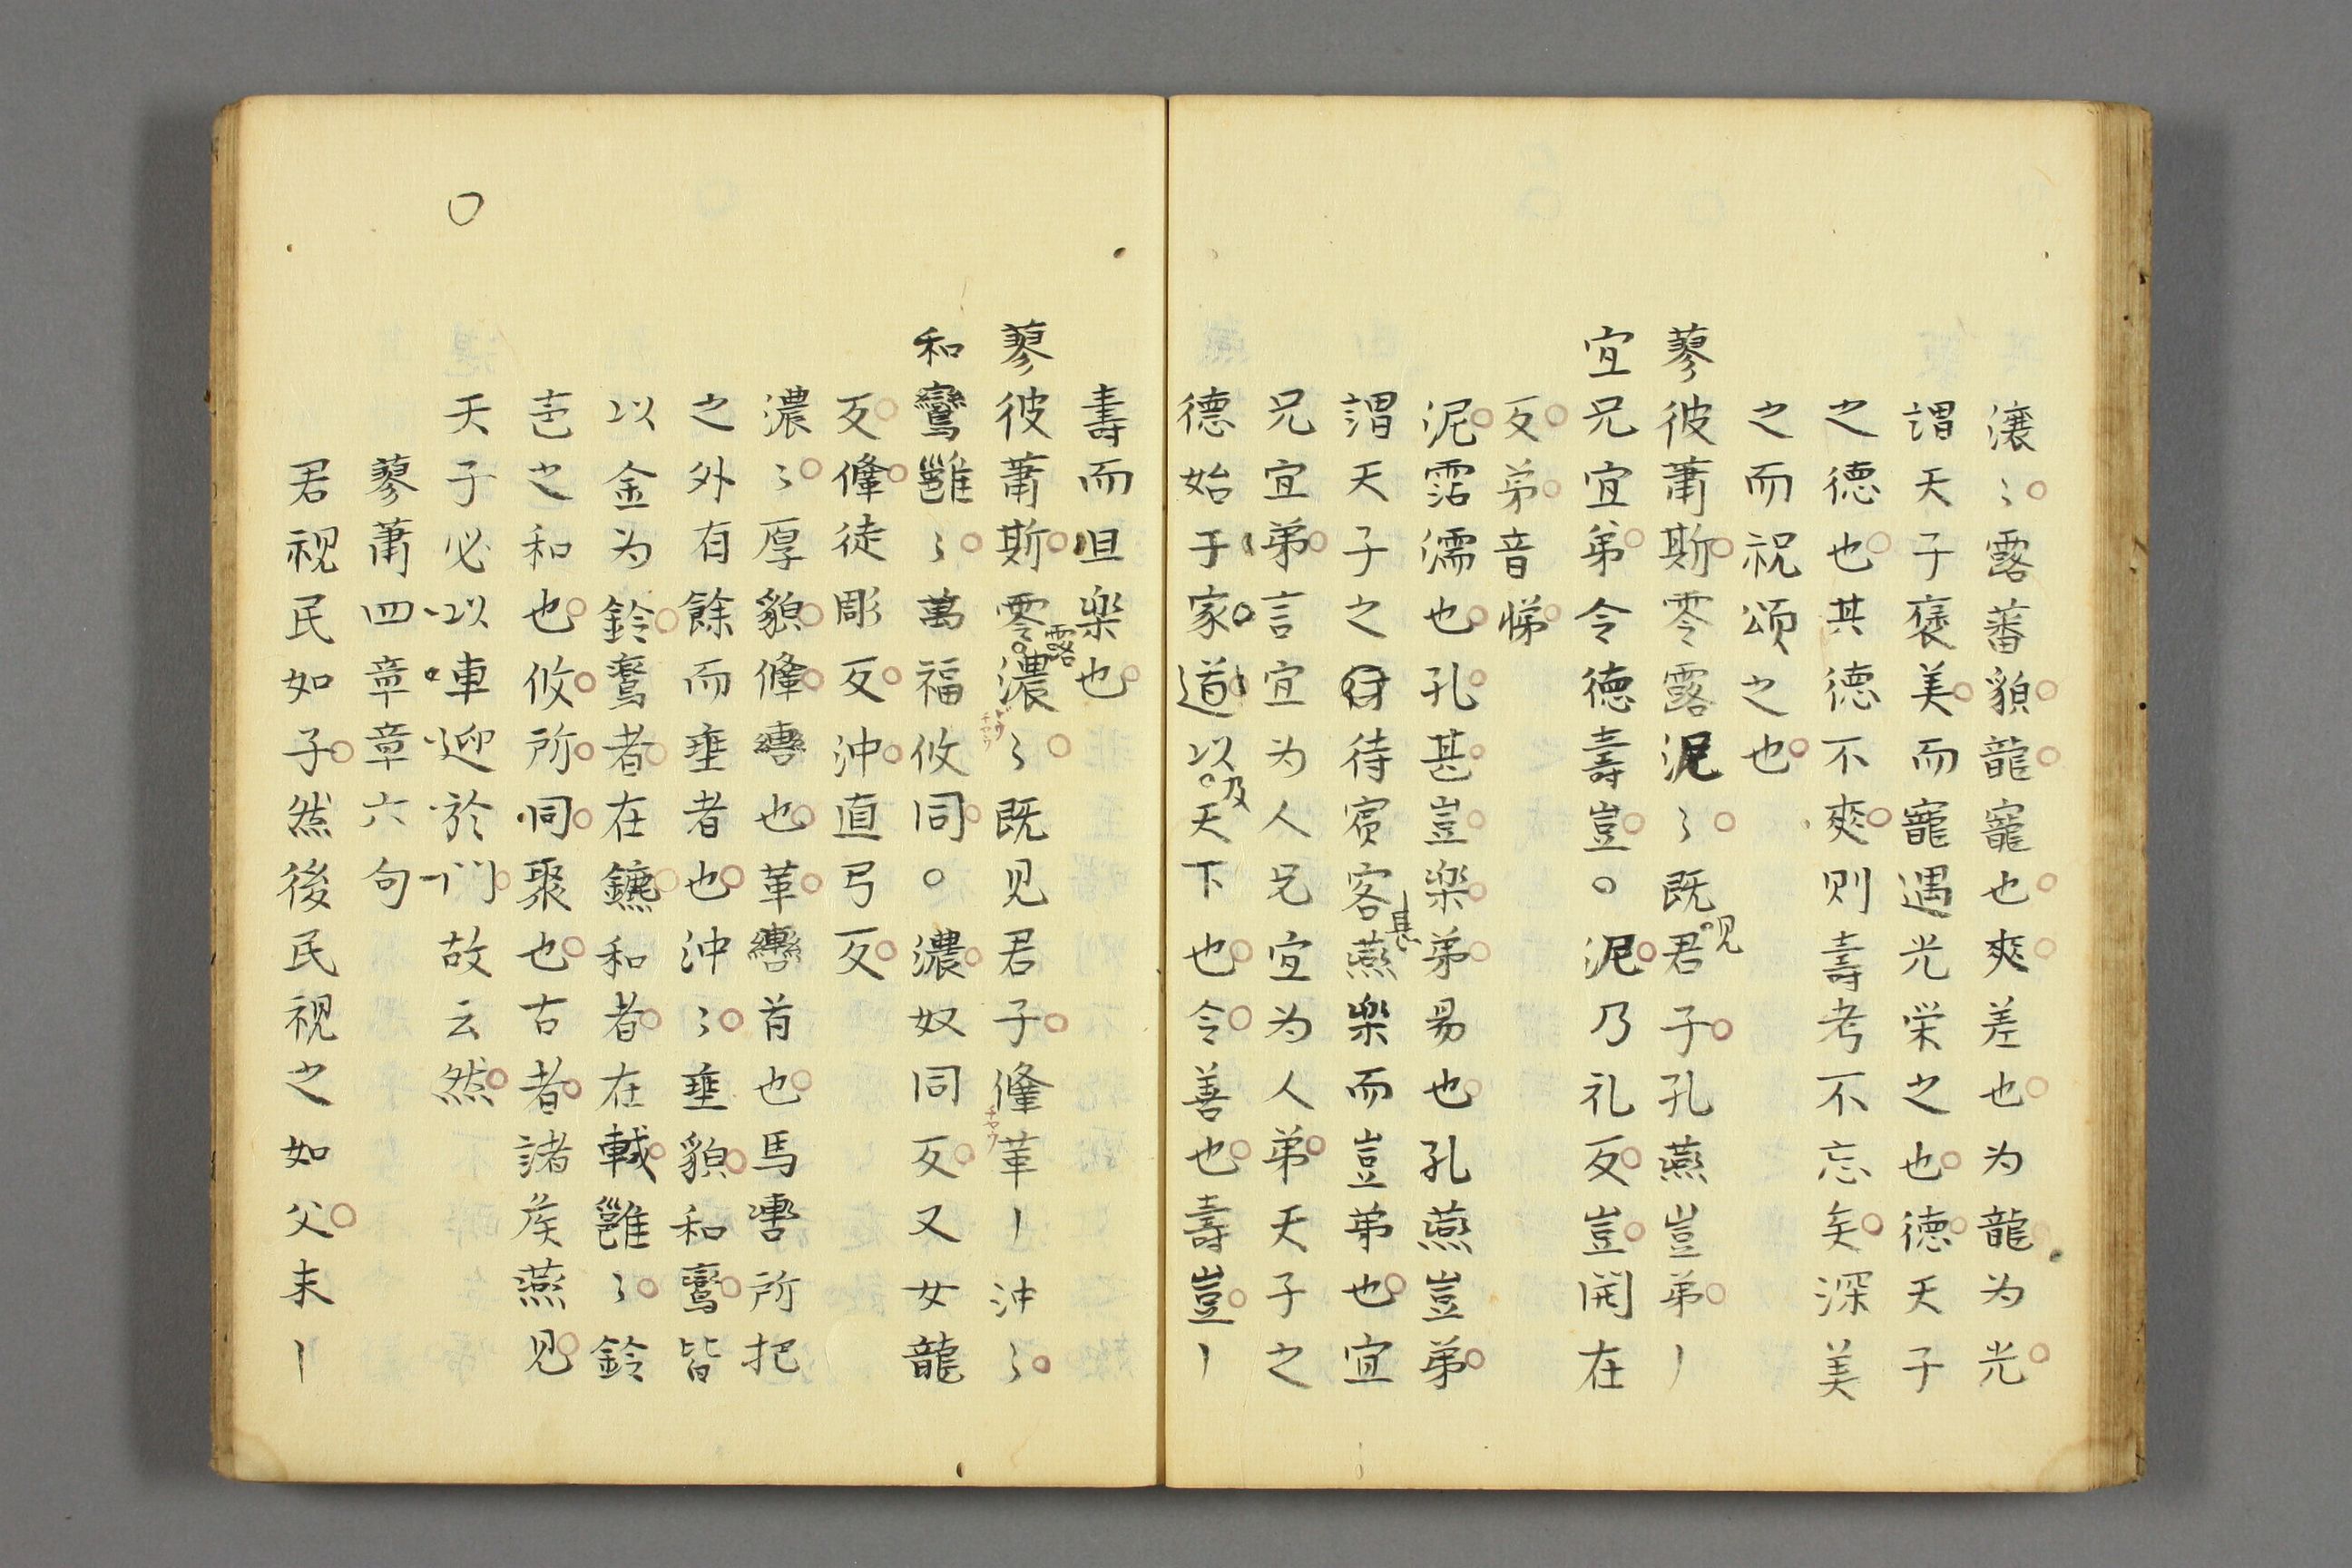 瀼〻露蕃貌龍寵也爽差也为龍为光
謂天子褒美而寵遇光栄之也德天子
之德也其德不爽則壽考不忘矣深美
之而祝頌之也
蓼彼蕭斯零露泥〻既見君子孔燕豈弟丨
宜兄宜弟令德壽豈○泥乃礼反豈開在
反弟音悌
泥霑濡也孔甚豈楽弟易也孔燕豈弟
謂天子之待賓客甚燕楽而豈弟也宜
兄宜弟言宜为人兄宜为人弟天子之
德始于家道以及天下也令善也壽豈丨
壽而且楽也
蓼彼蕭斯零露濃〻既见君子鞗革丨沖〻
和鸞雝〻萬福攸同○濃奴同反又女龍
反鞗徒彫反沖直弓反
濃〻厚貌鞗轡也革轡首也馬轡所把
之外有餘而垂者也沖〻垂貌和鸞皆
以金为鈴鸞者在鑣和者在軾雝〻鈴
声之和也攸所同聚也古者諸侯燕见
天子必以車迎於門故云然
蓼蕭四章章六句
君視民如子然後民視之如父末丨